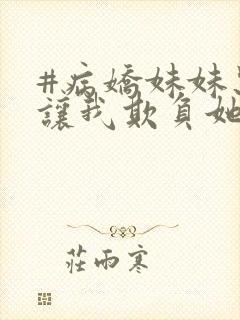 #病嬌妹妹
讓我欺負她
莊雨寒